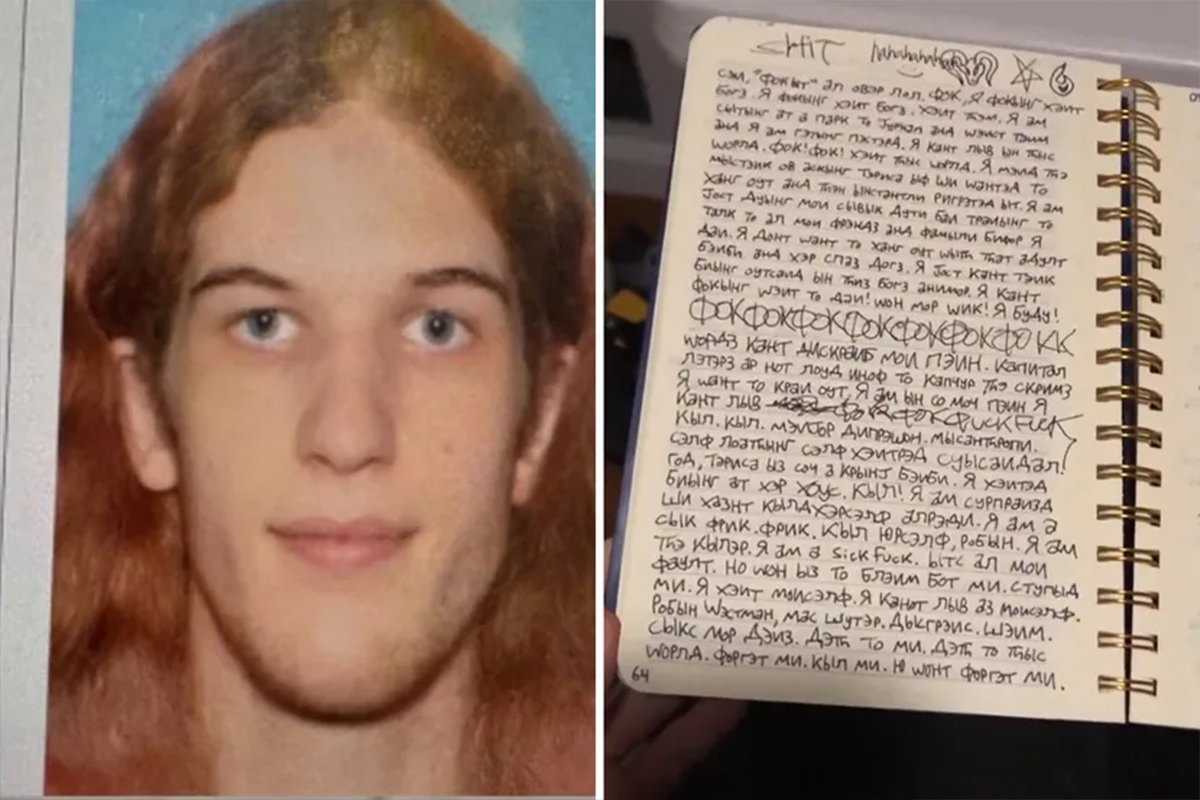 SHIT hahahahahah
СЭИ, "ФОКЫТ" ал ОВЭР ЛОЛ. ФОК, Я ФОКЫНГ ХЭИТ
БОГЗ. Я ФОКЫНГ ХЭИТ БОГЗ. ХЭИТ ТЭМ. Я АМ
СЫТЫНГ АТ А ПАРК ТО ЈУРНАЛ АНД WЭИСТ ТАИМ
АНД Я АМ ГЭТЫНГ
WОРЛД. ФОК! ФОК! ХЭИТ WОРЛД. Я МЭИД
МЫСТЭИК ОВ АСКЫНГ ТЭРИСА ЫФ ШИ WАНТЭД ТО
ХАНГ ОУТ АНД ЫНСТАНТЛИ РИГРЭТЭД ЫТ. Я АМ
ЈОСТ ДУЫНГ МОИ СЫВЫК ДУТИ БАИ ТРАИЫНГ ТО
ТАЛК ТО АЛ МОИ ФРЭНДЗ АНД ФАМЫЛИ БИФОР Я
ДАИ. Я ДОНТ WАНТ ТО ХАНГ ОУТ WЫТҺ ТҺАТ АДУЛТ
БЭИБИ АНД ХЭР СПАЗ ДОГЗ. Я ЈОСТ КАНТ ТЭИК
БИЫНГ ОУТСАИД ЫН БОГЗ АНИМОР. Я КАНТ
ФОКЫНГ WЭИТ ТО ДАИ! WОН МОР WИК! Я БУДУ!
ФОКФОКФОКФОКФОКФОКФОКК
WОРДЗ КАНТ ДИСКРАИБ МОИ ПЭИН. КАПИТАЛ
ЛЭТЭРЗ АР НОТ ЛОУД ИНОФ ТО КАПЧУР ТҺЭ СКРИМЗ
Я WАНТ ТО КРАИ ОУТ. Я АМ ЫН СО МОЧ ПЭИН Я
КАНТ ЛЫВ ФОК FUCK FUCK
КЫЛ. КЫЛ. МЭИЈОР ДИПРЭШОН. МЫСАНТҺРОПИ.
СЭЛФ ЛОАТҺЫНГ СЭЛФ ХЭИТРЭД СУЫСАИДАЛ!
ГОД, ТЭРИСА ЫЗ СОЧ А КРЫНЈ БЭИБИ. Я ХЭИТЭД
БИЫНГ АТ ХЭР ХОУС. КЫЛ! Я АМ СУРПРАИЗД
ШИ ХАЗНТ КЫЛД ХЭРСЭЛФ АЛРЭДИ. Я АМ А
СЫК ФРИК. ФРИК. КЫЛ ЮРСЭЛФ, РОБЫН. Я АМ
ТҺЭ КЫЛЭР. Я АМ А SICK FUCK. ЫТС АЛ МОИ
ФАУЛТ. НО WОН ЫЗ ТО БЛЭИМ БОТ МИ. СТУПЫД
МИ. Я ХЭИТ МОИСЭЛФ. Я КАНОТ ЛЫВ АЗ МОИСЭЛФ.
РОБЫН WЭСТМАН, МАС ШУТЭР. ДЫСГРЭИС. ШЭИМ.
СЫКС МОР ДЭИЗ. ДЭТҺ ТО МИ. ДЭТҺ ТО ТҺЫС
WОРЛД. ФОРГЭТ МИ. КЫЛ МИ. Ю WОНТ ФОРГЭТ МИ.
64